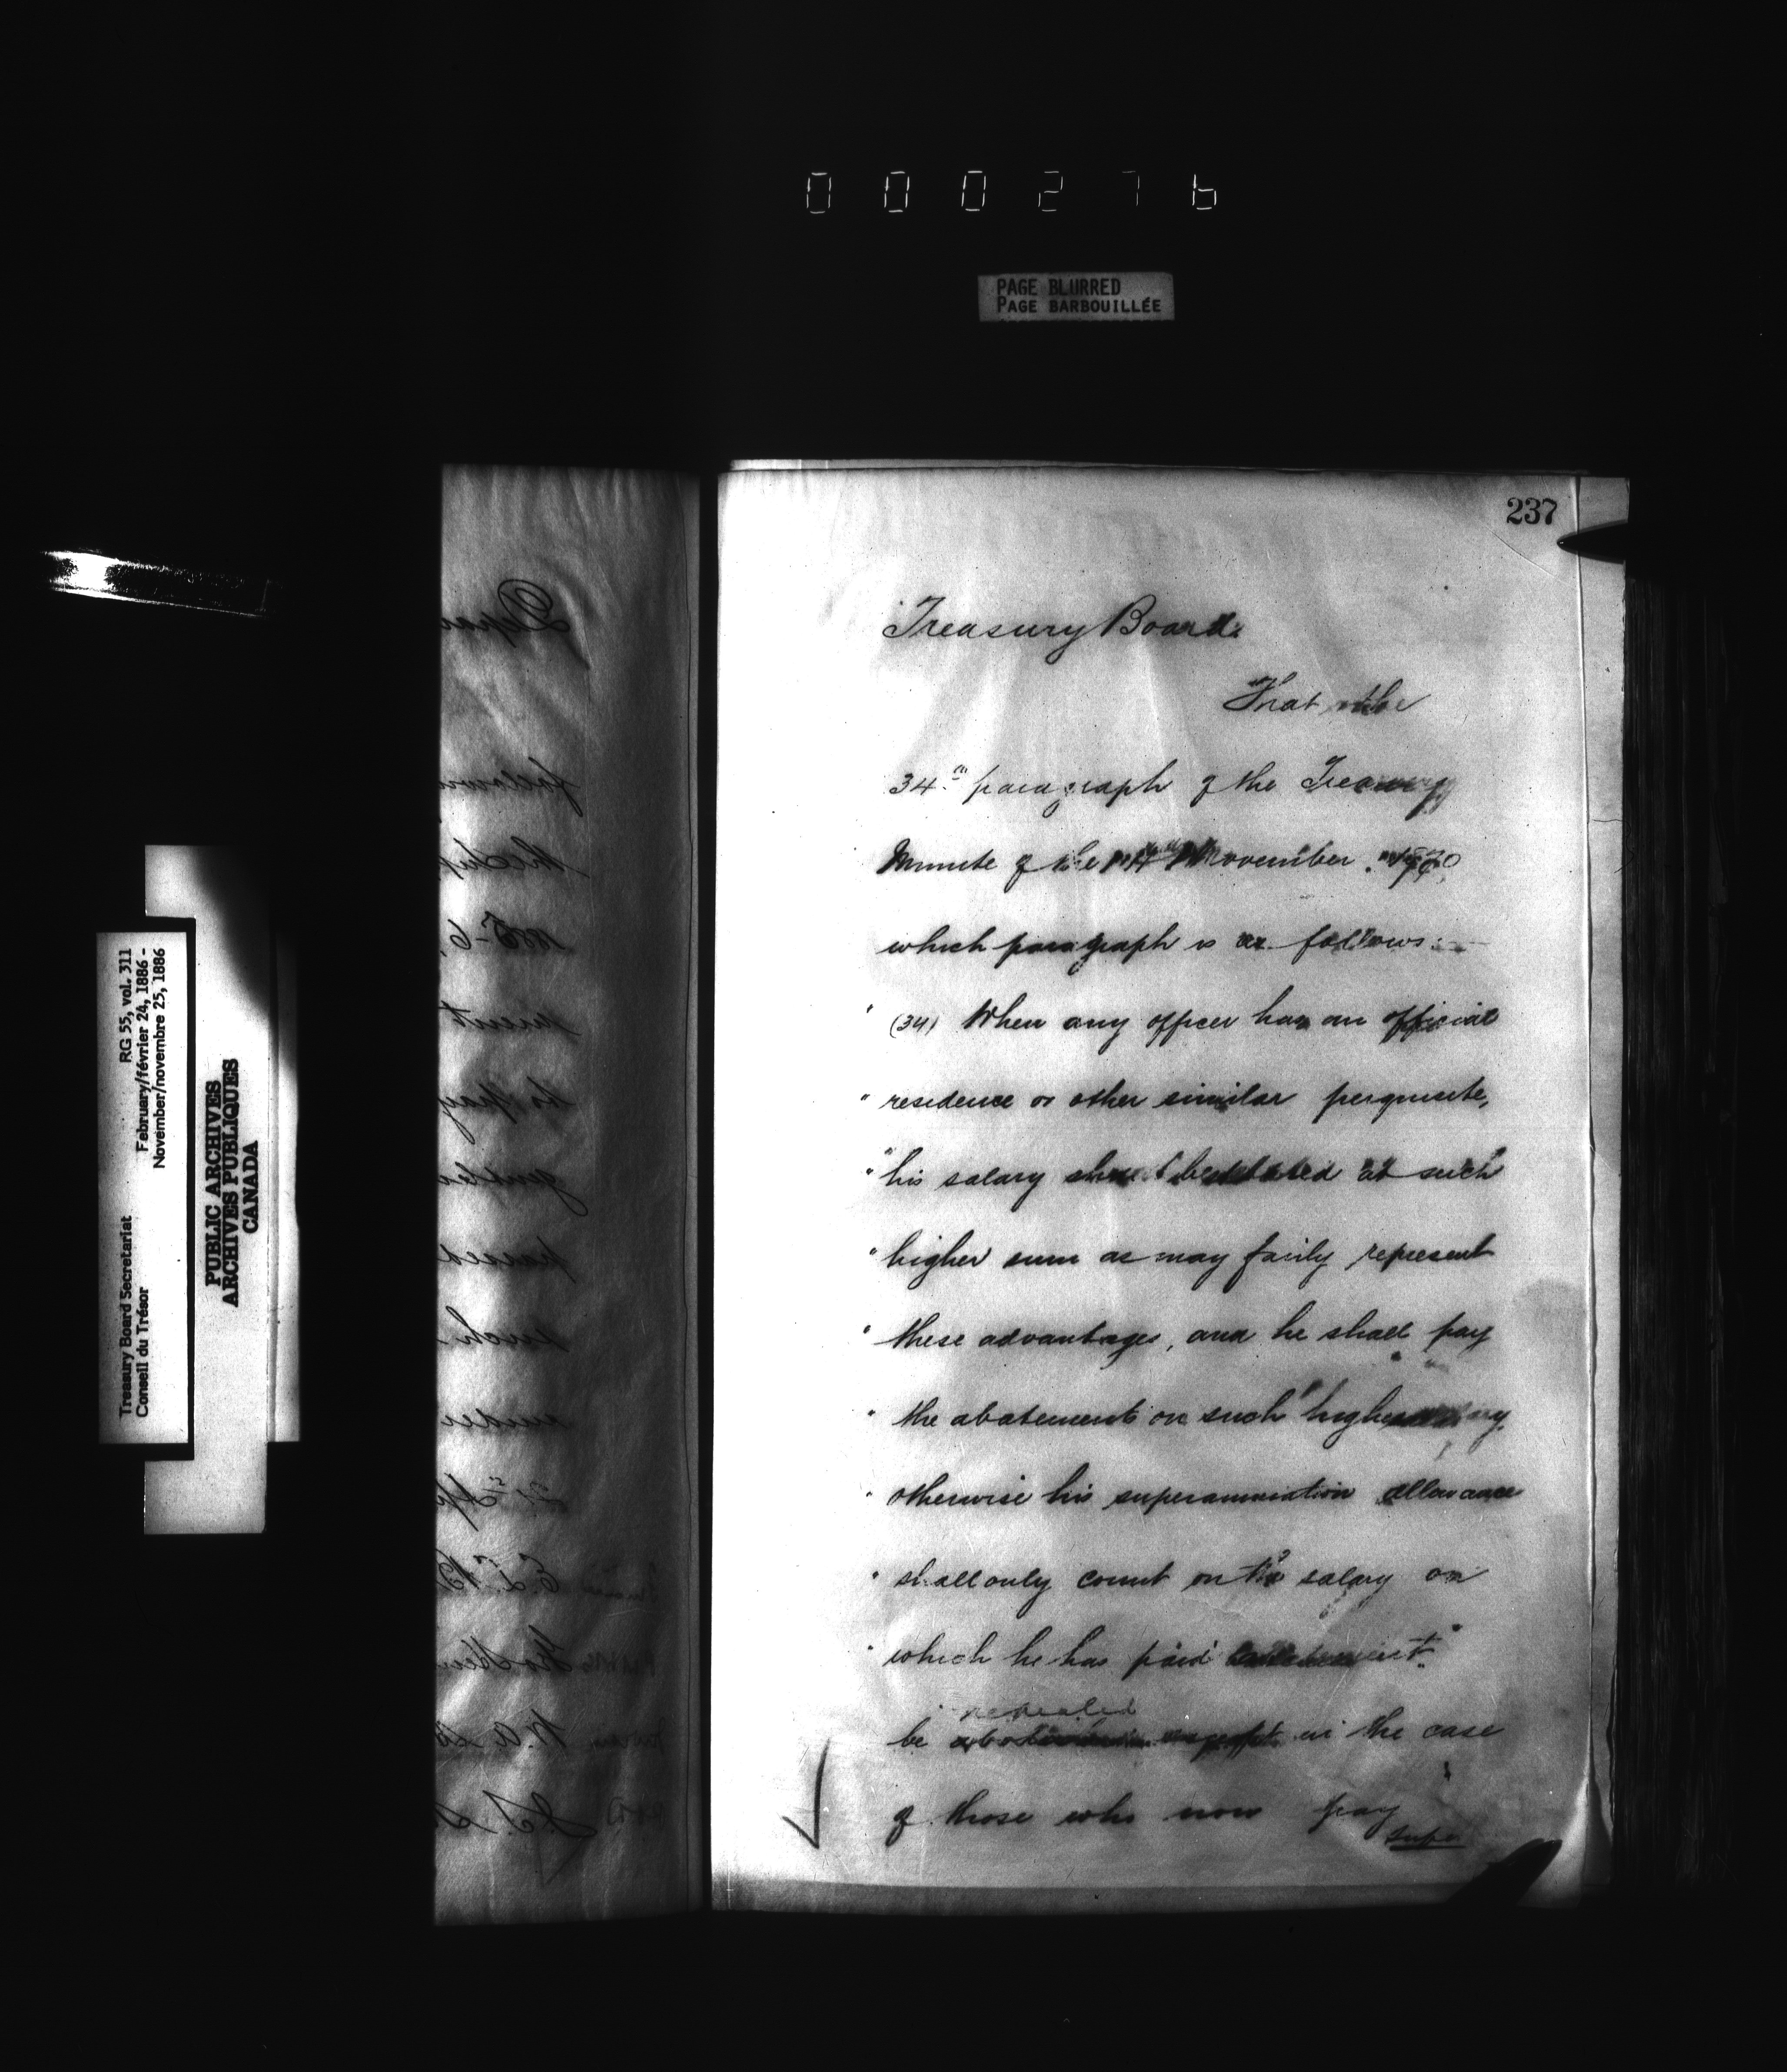 000276
PAGE BLURRED
PAGE BARBOUILLÉE
Treasury Board Secretariat RG 55, vol. 311
Conseil du Trésor February/février 24, 1886 -
November/novembre 25, 1886
PUBLIC ARCHIVES
ARCHIVES PUBLIQUES
CANADA
237
Treasury Board.
That the
34th paragraph of the Treasury
Minute of the November
which paragraph is as follows:—
" (34) When any officer has an official
" residence or other similar perquisite,
" his salary shall be stated at such
" higher sum as may fairly represent
" these advantages, and he shall pay
" the abatement on such higher salary
" otherwise his superannuation allowance
" shall only count on the salary on
" which he has paid abatement."
repealed
be in the case
of those who now pay
supe